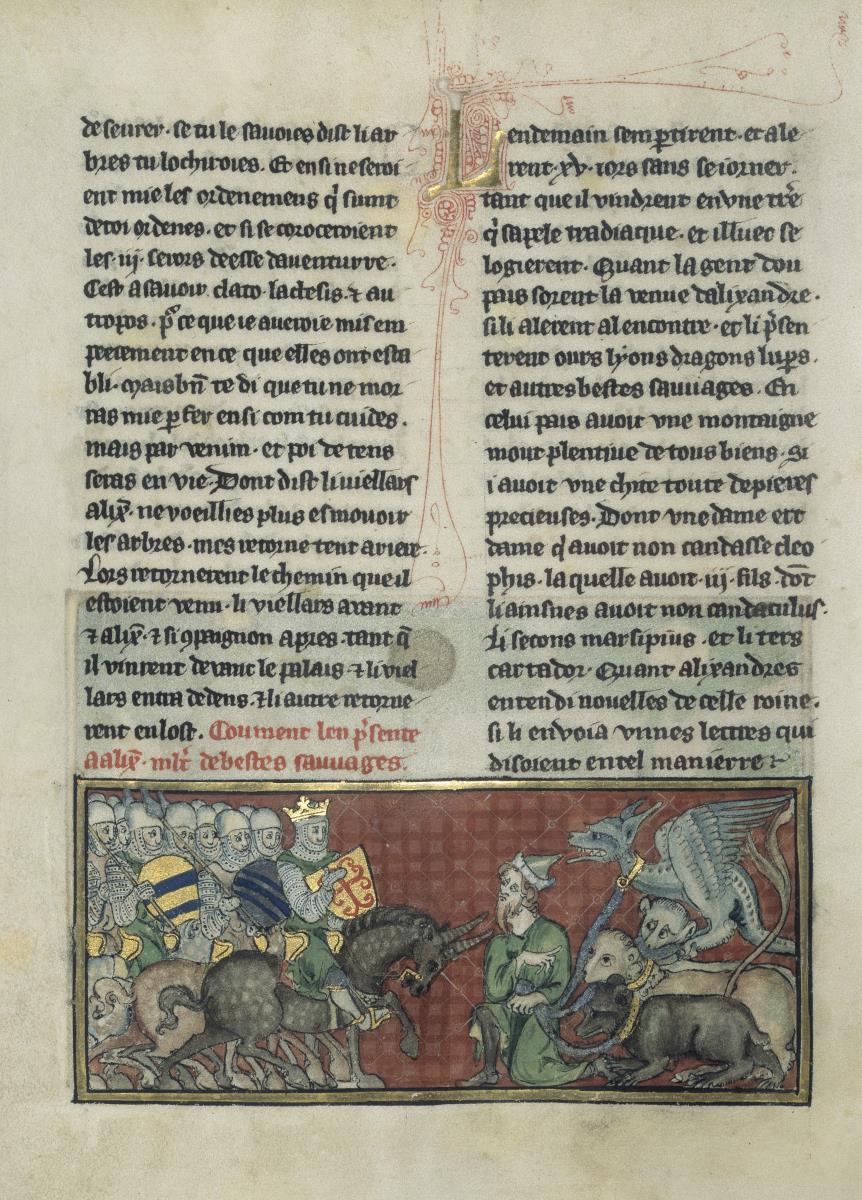 de seurer · se tu le sauoies dist li ar
bres tu lochiroies. Et ensi ne seroi
ent mie les ordenemens q̓ sunt
de toi ordenes · et si se coroceroient
les · iij · serors deesse dauenturre ·
Cest asauoir clato · lachesis · ⁊ au
tropos · p̓ ce que ie aueroie mis em
peecement en ce que elles ont esta
bli · mais bn̄ te di que tu ne mor
ras mie ꝑ fer ensi com tu cuides .
mais par venim · et poi de tens
seras en vie · Dont dist li viellars
alix̄ · ne voeillies plus esmouoir
les arbres · mes retornetent ariere ·
Lors retornerent le chemin que il
estoient venu · li viellars auant
⁊ alix̄ · ⁊ si ꝯpaignon apres · tant q̄
il vinrent deuant le palais · ⁊ li viel
lars entra dedens · ⁊ li autre retorne
rent en lost . Coument len p̓sente
a alix̄ · mlt̄ de bestes sauuages .
Lendemain sem ꝑtirent · et ale
rent · xv · iors sans seiorner ·
tant que il vindrent en vne tr̄e
q̓ sapele tradiaque · et illuec se
logierent · Quant la gent dou
pais sorent la venue dalixandre ·
si li alerent al encontre · et li p̓sen
terent ours lyons dragons lupars ·
et autres bestes sauuages · En
celui pais auoit vne montaigne
mout plentiue de tous biens · Si
i auoit vne chite toute de pieres
precieuses · Dont vne dame ert
dame q̓ auoit non candasse cleo
phis · la quelle auoit · iij · fils · dōt
li ainsnes auoit non candaculus ·
Li secons marsipius · et li ters
cartador · Quant alixandres
entendi nouelles de celle roine ·
si li enuoia vnnes lettres qui
disoient en tel manierre ·